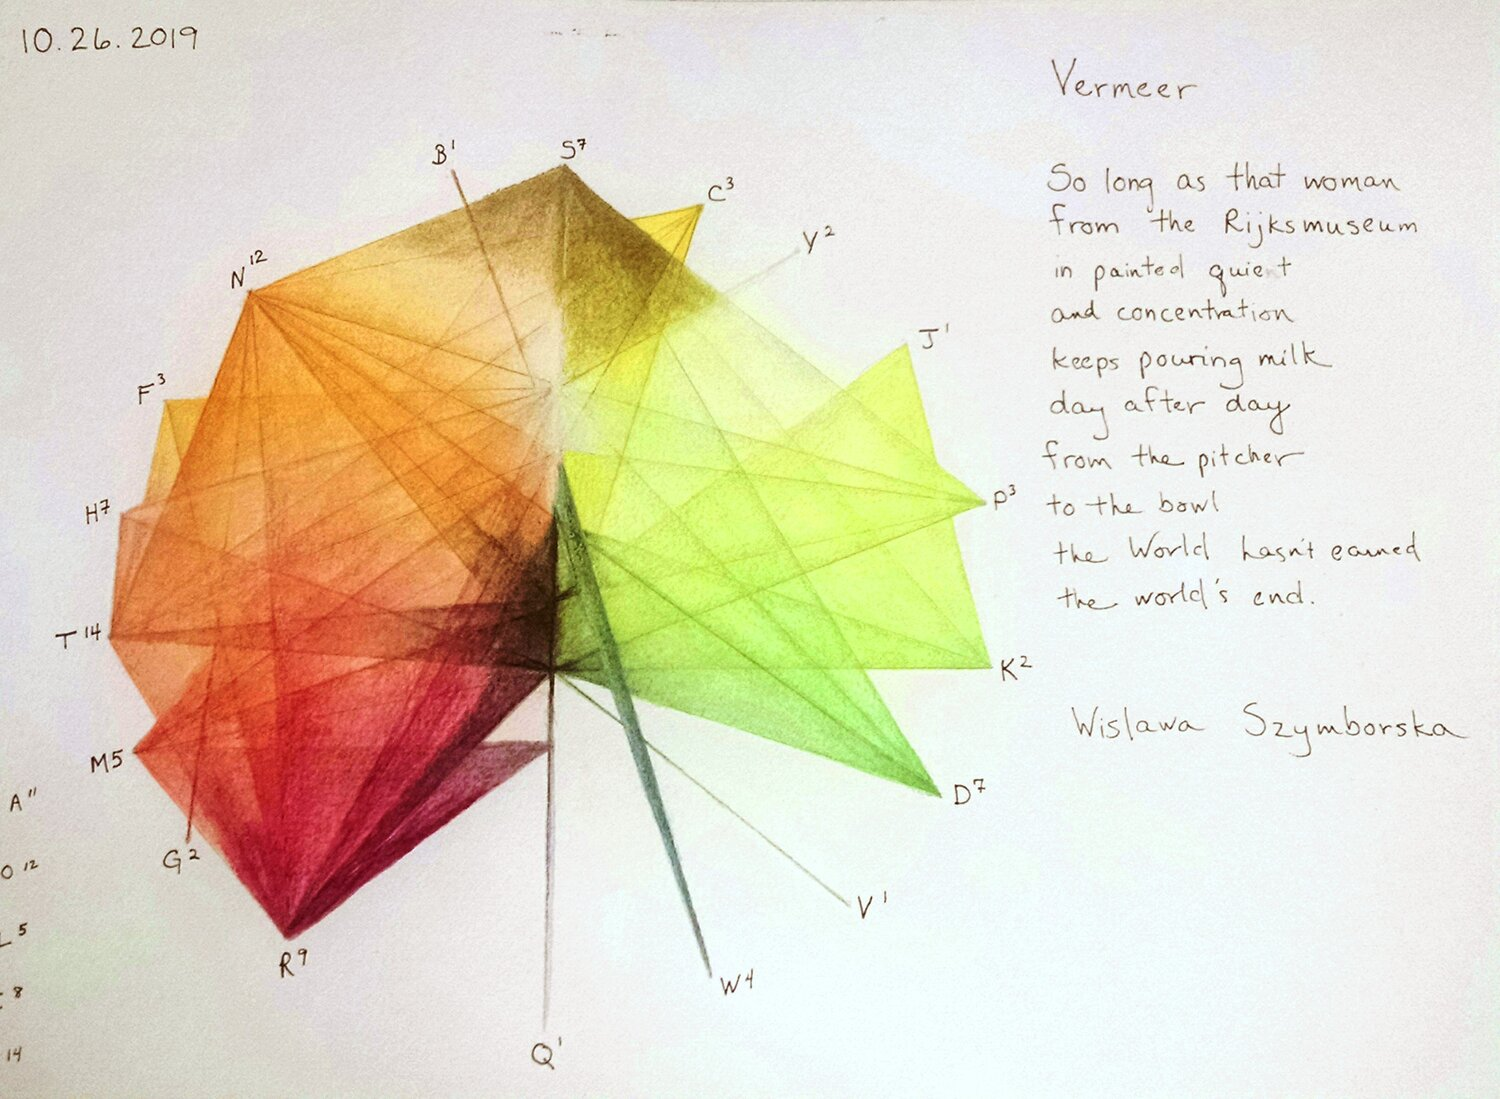 10.26.2019
Vermeer
So long as that woman
from the Rijksmuseum
in painted quiet
and concentration
keeps pouring milk
day after day
from the pitcher
to the bowl
the World hasn't earned
the world's end.
Wislawa Szymborska
B¹
S⁷
C³
Y²
N¹²
J¹
F³
H⁷
P³
T¹⁴
K²
M5
D⁷
G²
V¹
R⁹
W⁴
Q¹
A¹¹
O¹²
L⁵
8
14